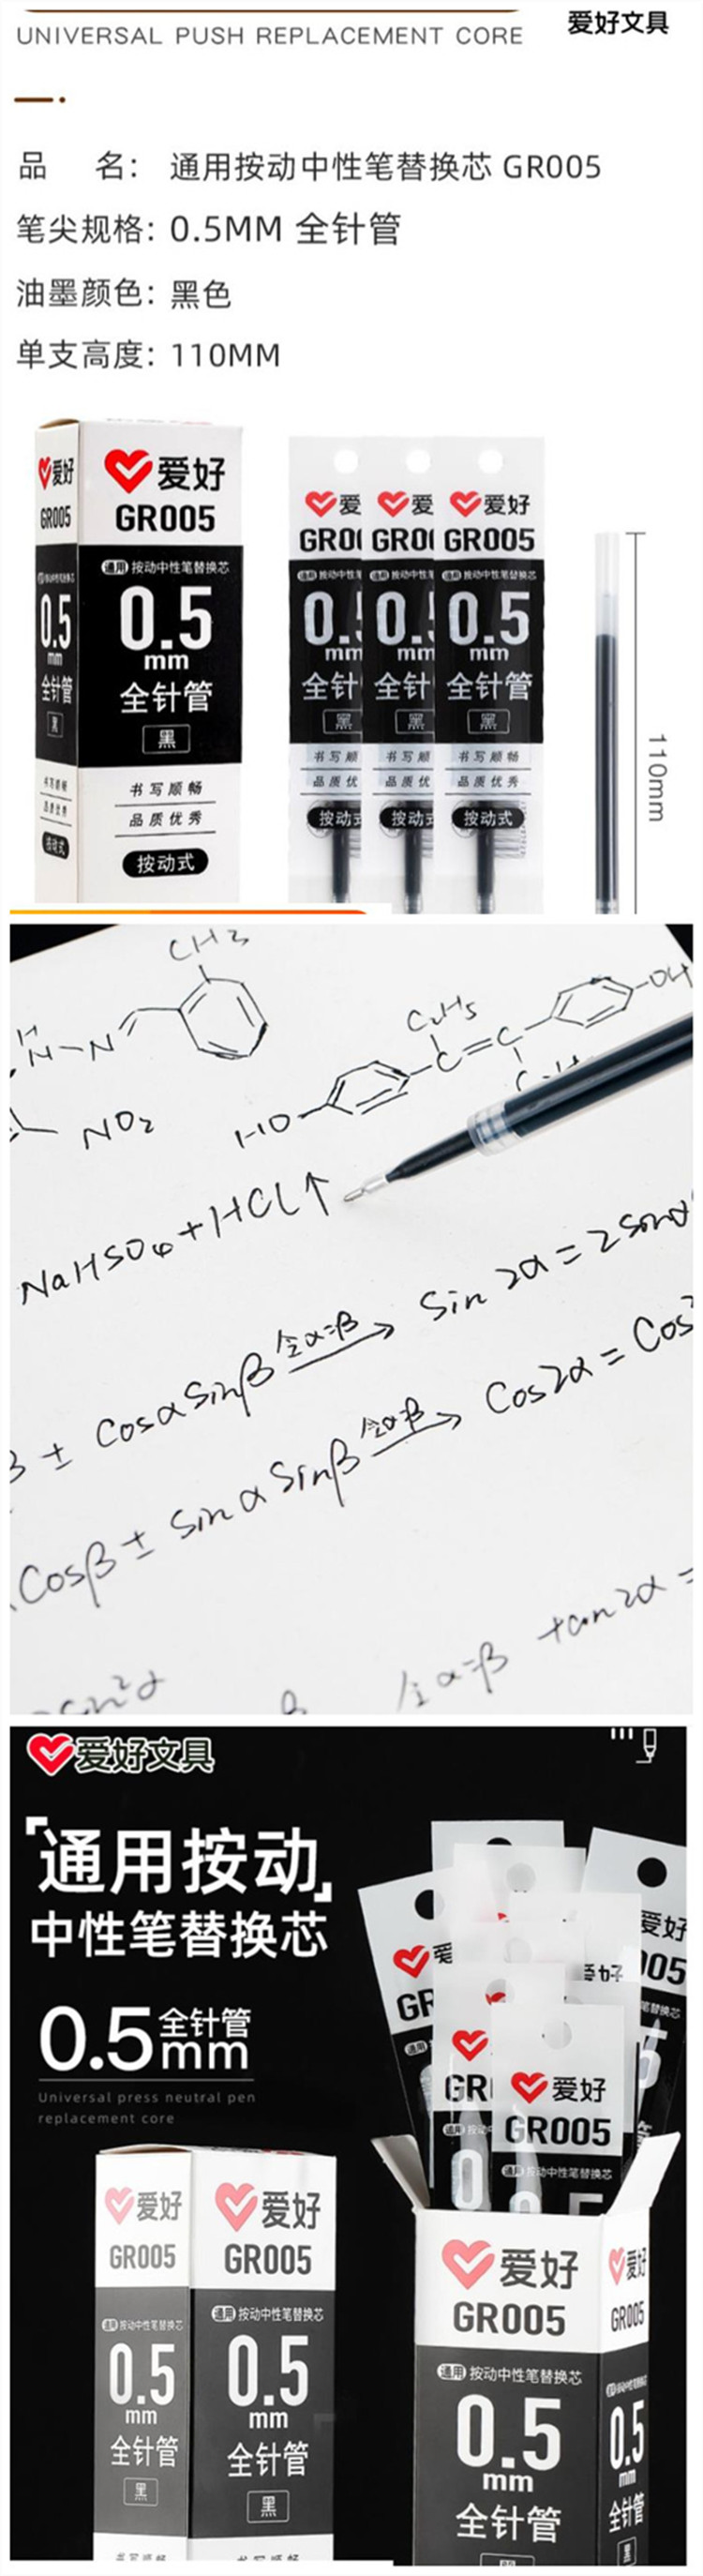 UNIVERSAL PUSH REPLACEMENT CORE
爱好文具
品 名： 通用按动中性笔替换芯 GR005
笔尖规格： 0.5MM 全针管
油墨颜色： 黑色
单支高度： 110MM
爱好
GR005
0.5
mm
全针管
黑
书写顺畅
品质优秀
按动式
爱好
GR005
通用 按动中性笔替换芯
0.5
mm
全针管
黑
书写顺畅
品质优秀
按动式
爱
GR0
0.
mm
全针
黑
书写顺
品质优
按动式
爱
GR0
0.
mm
全针
黑
书写顺
品质优
按动式
爱好
GR005
通用 按动中性笔替换芯
0.5
mm
全针管
黑
书写顺畅
品质优秀
按动式
110mm
CH3
H
N-N
C2H5
C=C
OH
NO2
HO
NaHSO4+HCl↑
± cosα sinβ 令α=β → sin 2α = 2 sinα
cosβ ± sin α sinβ 令α=β → cos2α = cos²
令α=β tan2α =
爱好文具
「通用按动」
中性笔替换芯
0.5 全针管
mm
Universal press neutral pen
replacement core
爱好
GR005
通用 按动中性笔替换芯
0.5
mm
全针管
黑
书写顺畅
爱好
GR005
通用 按动中性笔替换芯
0.5
mm
全针管
黑
书写顺畅
爱好
005
爱好
GR
GR
爱好
GR005
通用 按动中性笔替换芯
爱好
GR005
通用 按动中性笔替换芯
0.5
mm
全针管
爱好
GR005
0.5
mm
全针管
黑